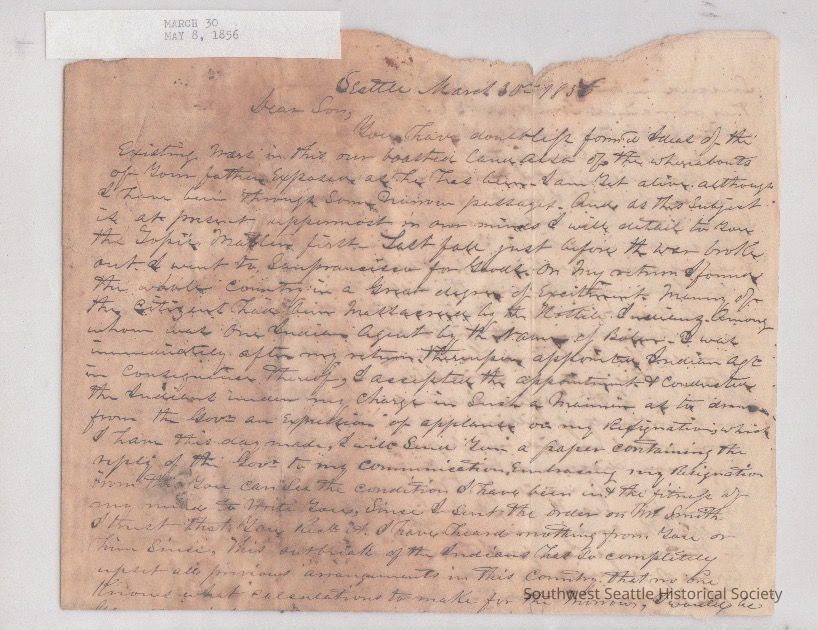 MARCH 30
MAY 8, 1856
Seattle March 30th 1856
Dear Son,
You have doubtless form'd Ideas of the
Existing wars in this our boasted land also of the whereabouts
of Your father Exposed as he has been I am Yet alive although
I have been through Some Narrow passages. And as that Subject
is at present uppermost in our minds I will detail to You
the Topic Matter first. Last fall just before the war broke
out I went to Sanfrancisco for Goods. On My return I found
the whole Country in a Great degree of Excitement Many of
the Citizens had been Massacreed by the Hostile Indians Among
whom was One Indian Agent by the Name of I was
immediately after my return thereupon appointed Indian Agt
in Consequence thereof, I accepted the appointment & Conducted
the Indians under my Charge in Such a Manner as to draw
from the Govr an Expression of applause on my Resignation, which
I have this day made, I will Send You a paper containing the
reply of the Govr to my Communication Embrasing my Resignation
from this You can See the condition I have been in & the fitness of
my mind to Write You, Since I Sent the order on Mr Smith
I trust that You I have heard nothing from You or
him Since, This outbreak of the Indians has So completely
upset all previous arrangements in this Country that no One
Knows what calculations to make for the Morrow, I would
Southwest Seattle Historical Society